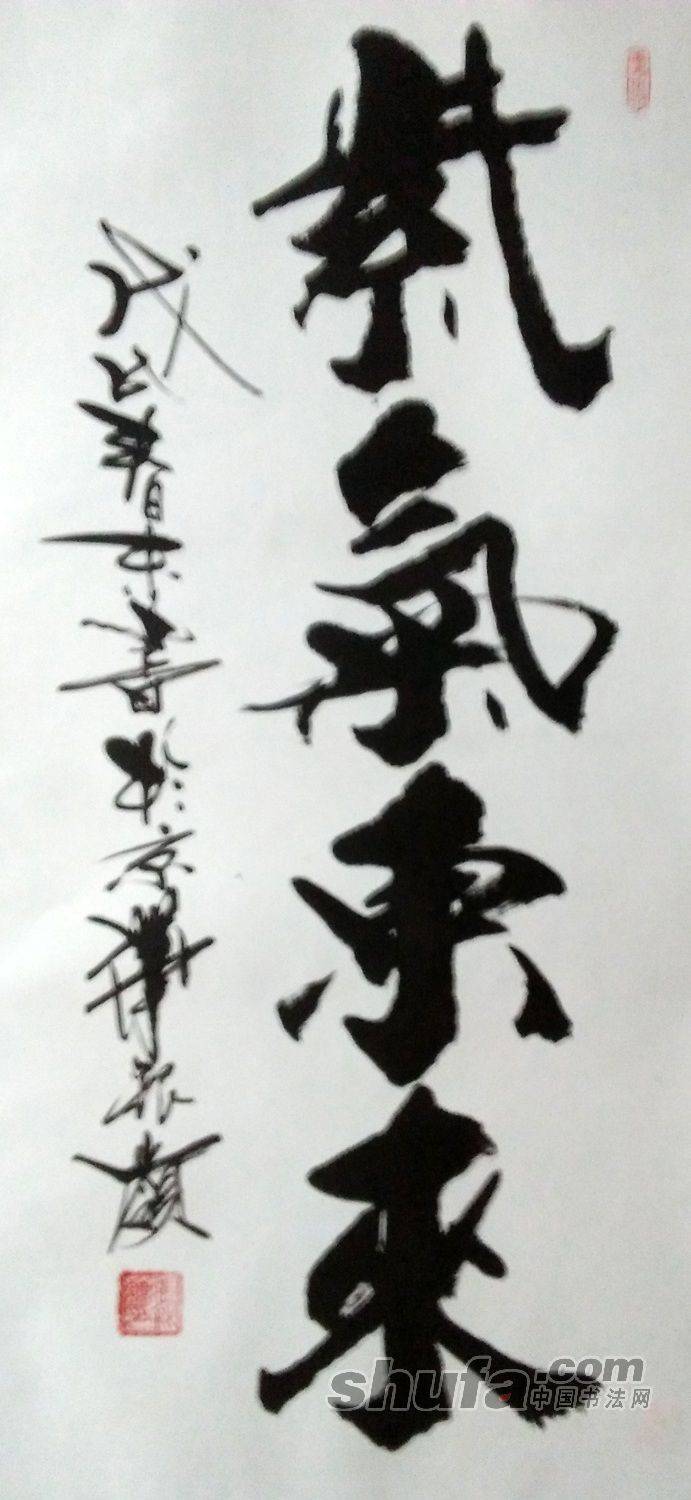 紫氣東來
戊戌春月宋春於京華
shufa.com
中国书法网